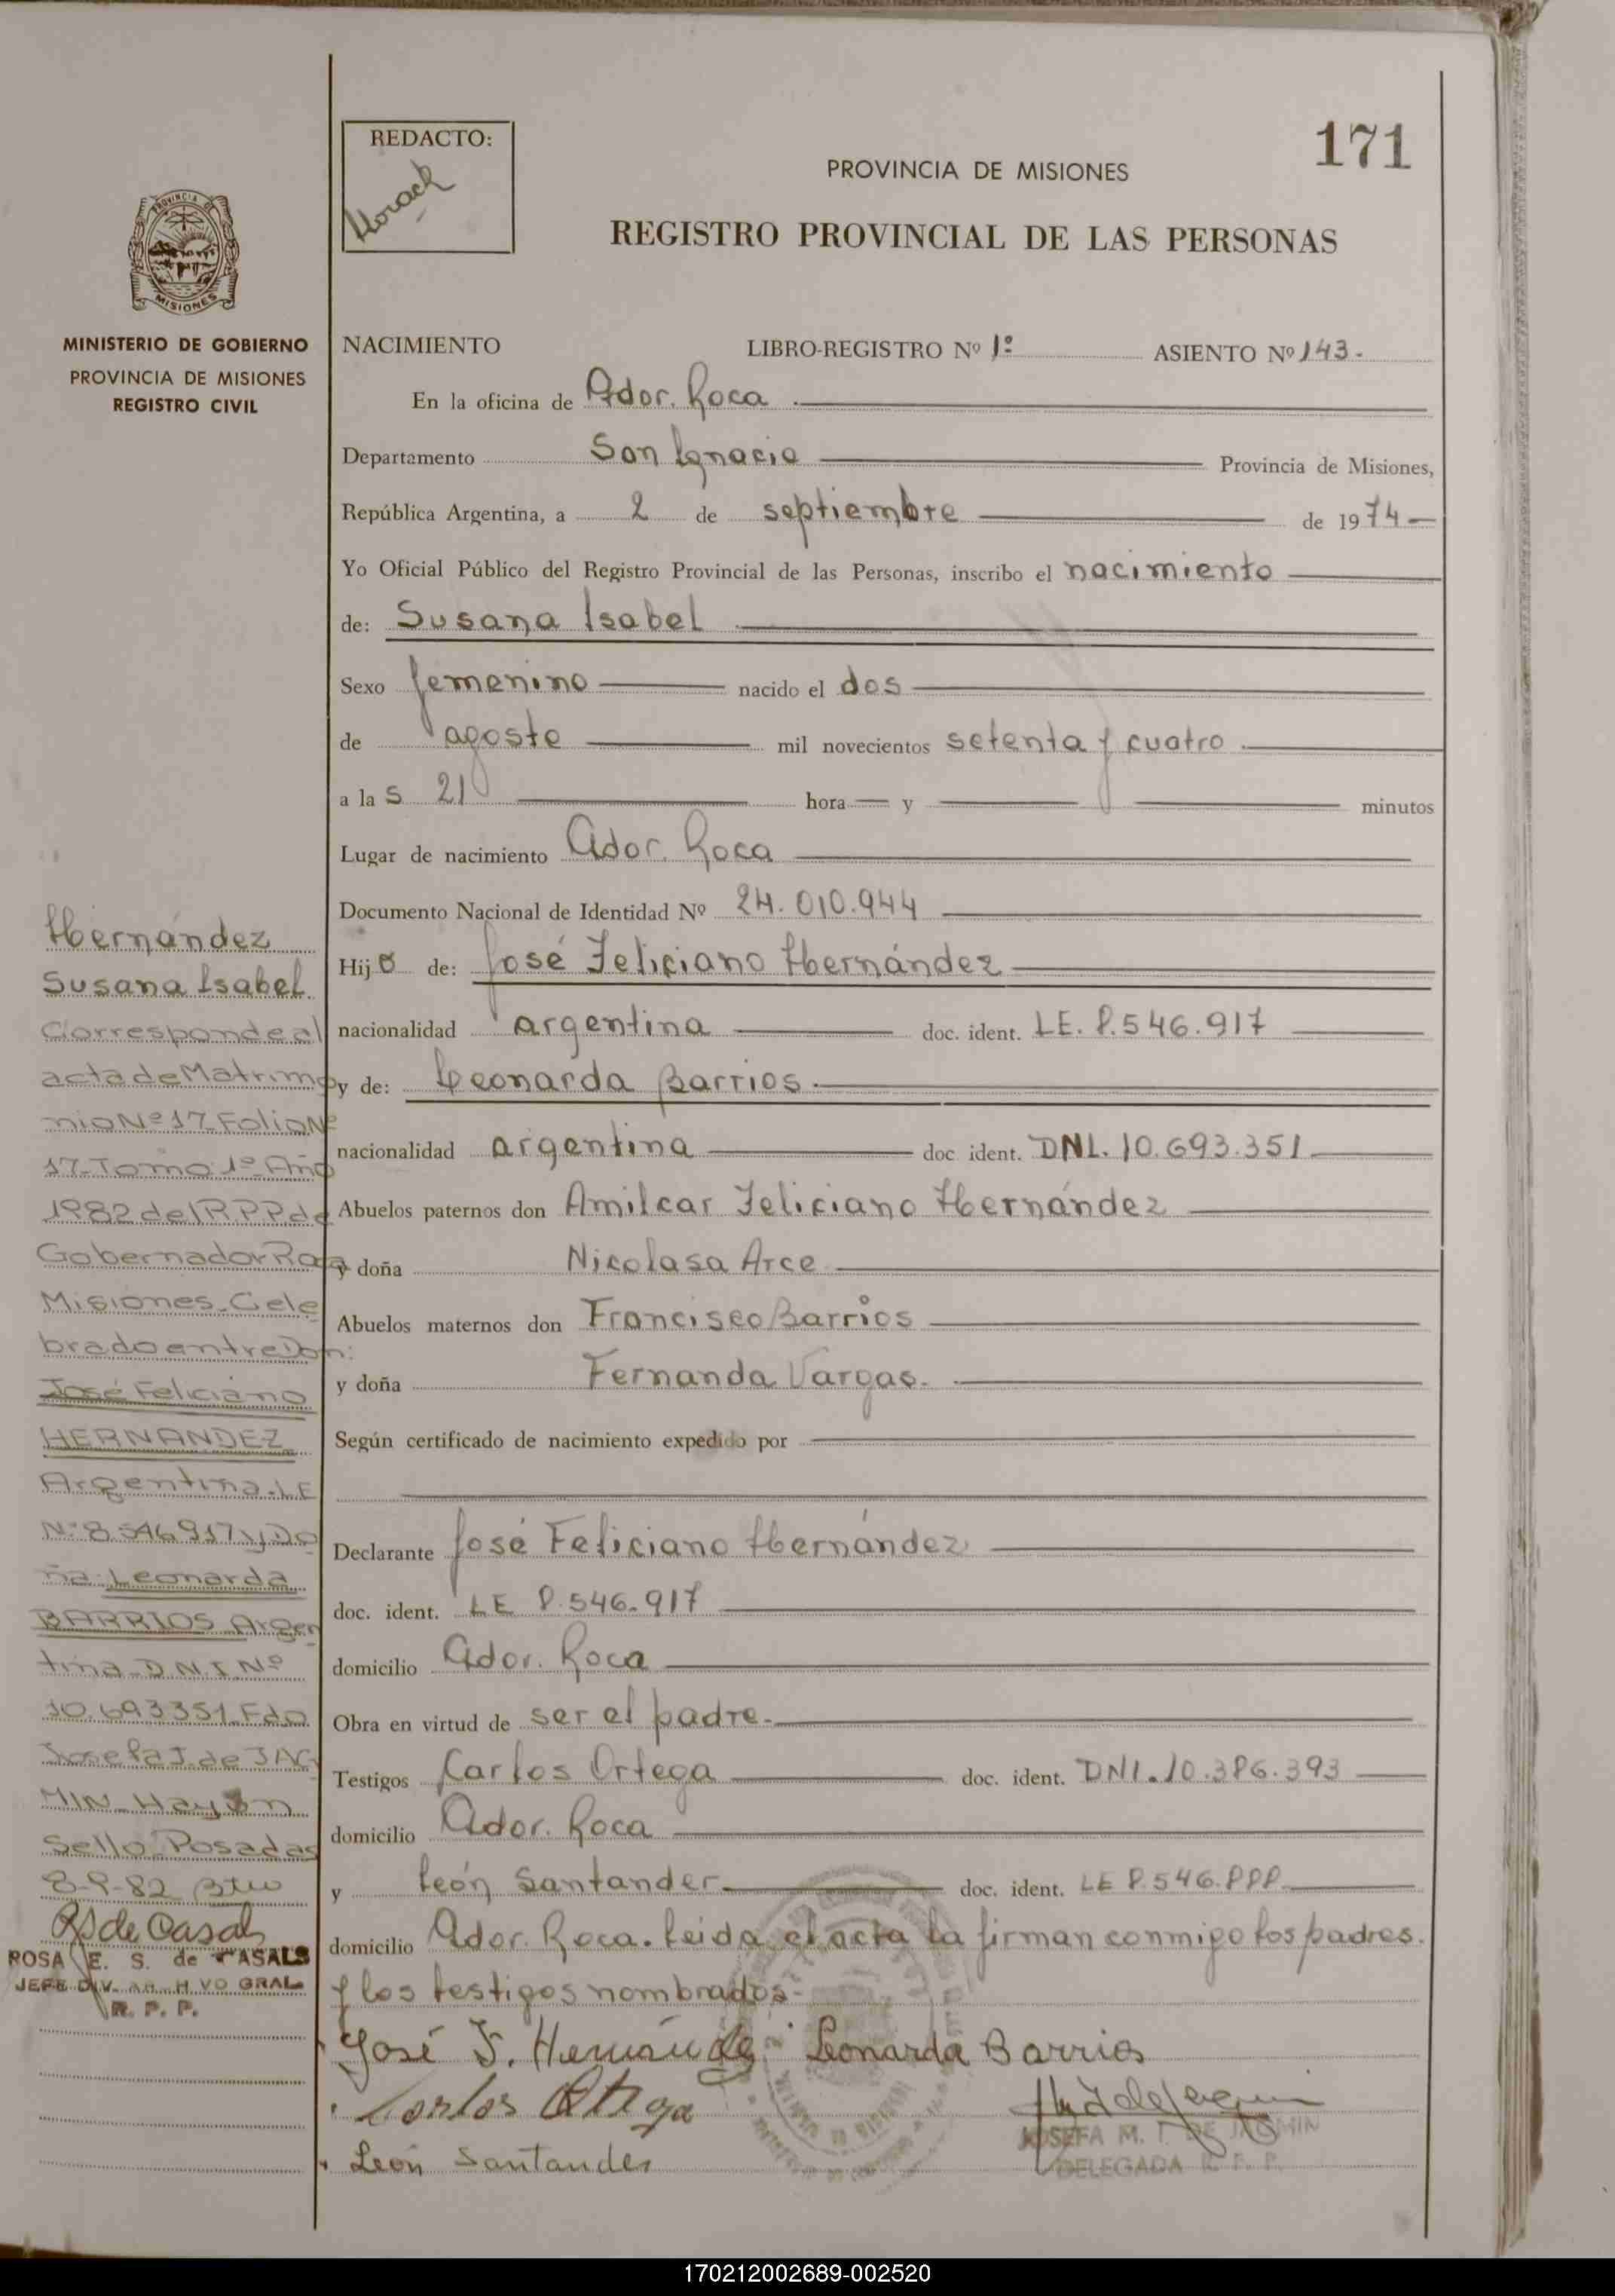 171
REDACTO:
PROVINCIA DE MISIONES
REGISTRO PROVINCIAL DE LAS PERSONAS
PROVINCIA DE
MISIONES
MINISTERIO DE GOBIERNO
PROVINCIA DE MISIONES
REGISTRO CIVIL
NACIMIENTO LIBRO-REGISTRO Nº 1º ASIENTO Nº 143.
En la oficina de Ador. Roca
Departamento San Ignacio Provincia de Misiones,
República Argentina, a 2 de septiembre de 1974
Yo Oficial Público del Registro Provincial de las Personas, inscribo el nacimiento
de: Susana Isabel
Sexo femenino nacido el dos
de agosto mil novecientos setenta y cuatro.
a la s 21 hora y minutos
Lugar de nacimiento Ador. Roca
Documento Nacional de Identidad Nº 24.010.944
Hija de: José Feliciano Hernández
nacionalidad argentina doc. ident. LE. 8.546.917
y de: Leonarda Barrios.
nacionalidad argentina doc ident. DNI. 10.693.351
Abuelos paternos don Amilcar Feliciano Hernández
y doña Nicolasa Arce
Abuelos maternos don Francisco Barrios
y doña Fernanda Vargas.
Según certificado de nacimiento expedido por
Declarante José Feliciano Hernández
doc. ident. LE 8.546.917
domicilio Ador. Roca
Obra en virtud de ser el padre.
Testigos Carlos Ortega doc. ident. DNI. 10.386.393
domicilio Ador. Roca
y León Santander doc. ident. LE 8.546.888
domicilio Ador. Roca. Leida el acta la firman conmigo los padres.
y los testigos nombrados.
José F. Hernández Leonarda Barrios
Carlos Ortega
León Santander
JOSEFA M. T. DE JACMIN
DELEGADA R. P. P.
Hernández
Susana Isabel.
Corresponde al
acta de Matrimo
nio Nº 17 Folio Nº
17 Tomo 1º Año
1982 del R.P.P. de
Gobernador Roca
Misiones. Cele
brado entre Don:
José Feliciano
HERNANDEZ
Argentina. LE
Nº 8.546917 y Do
ña: Leonarda
BARRIOS Argen
tina D.N.I Nº
10.693351. Fdo
Josefa J. de JAC
MIN Hay un
Sello. Posadas
8-9-82
RS de Casals
ROSA E. S. de CASALS
JEFE DIV. ARCHIVO GRAL
R. P. P.
170212002689-002520